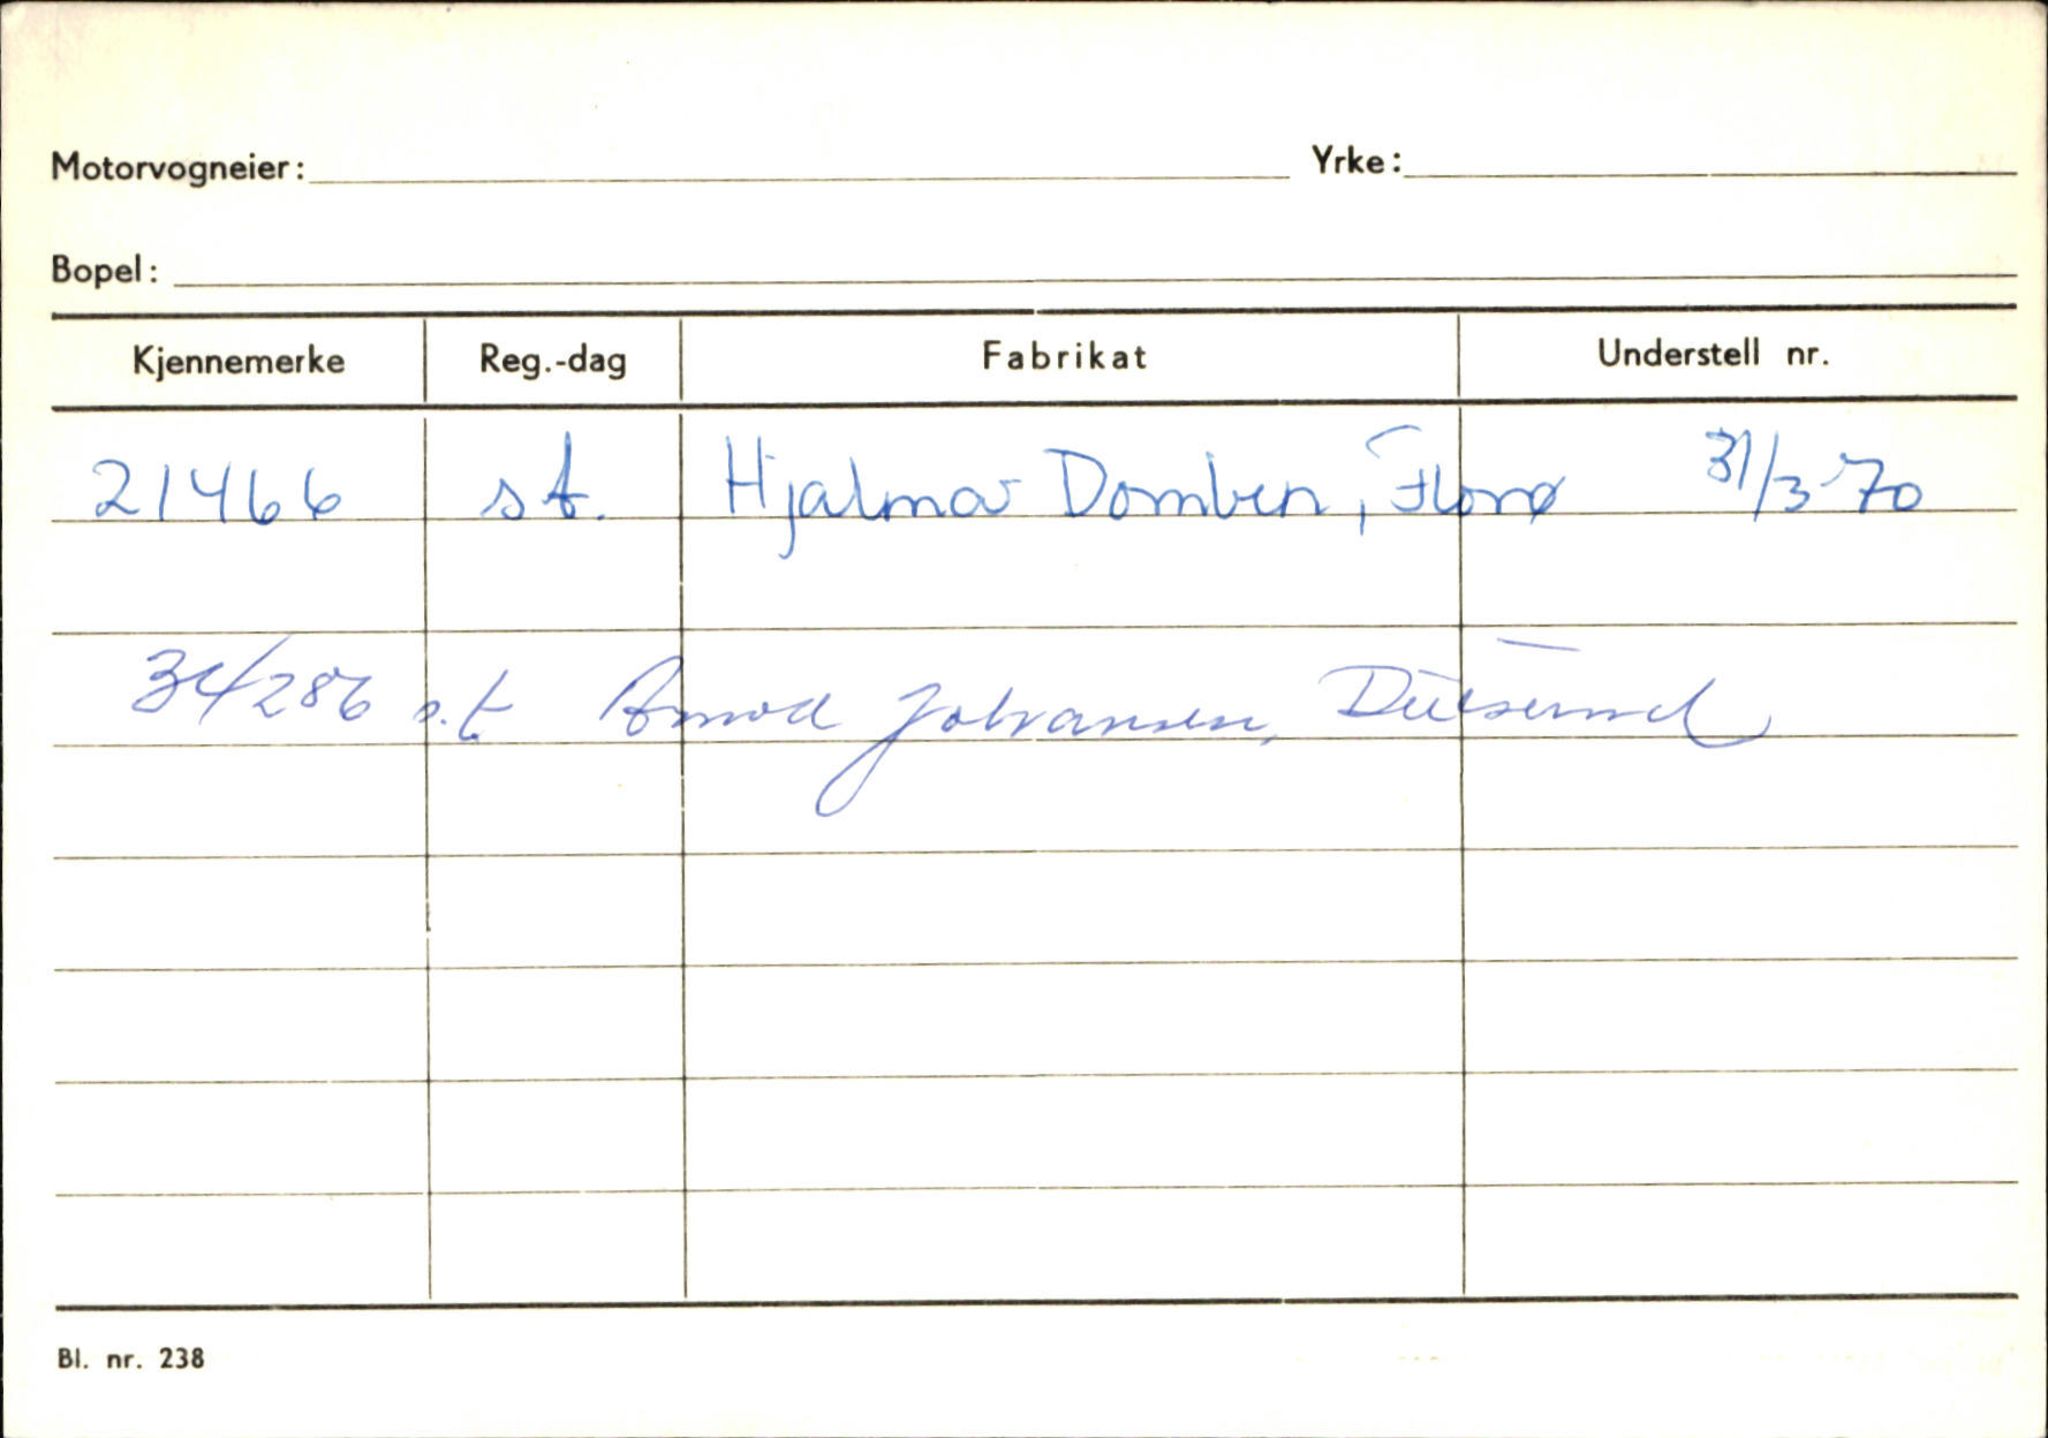 Motorvogneier: Yrke:
Bopel:
Kjennemerke Reg.-dag Fabrikat Understell nr.
21466 st. Hjalmar Domben, Florø 31/3-70
s.t. Johansen,
Bl. nr. 238